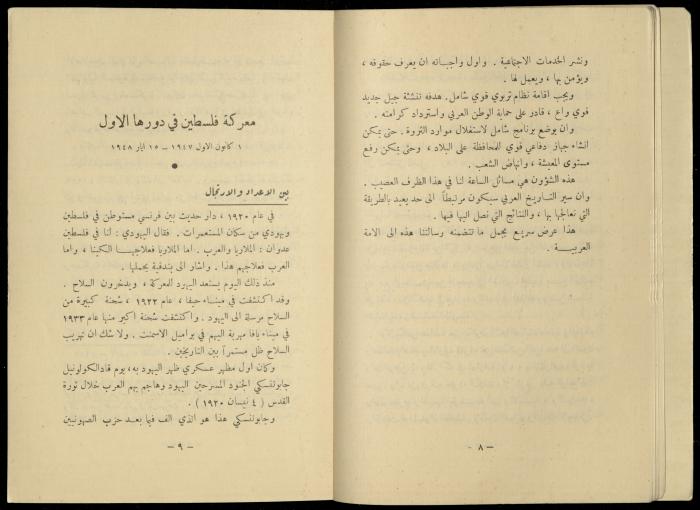 ونشر الخدمات الاجتماعية . واول واجباته ان يعرف حقوقه ،
ويؤمن بها ، ويعمل لها .
ويجب اقامة نظام تربوي قوي شامل. هدفه تنشئة جيل جديد
قوي واع ، قادر على حماية الوطن العربي واسترداد كرامته .
وان يوضع برنامج شامل لاستغلال موارد الثروة . حتى يمكن
انشاء جهاز دفاعي قوي للمحافظة على البلاد ، وحتى يمكن رفع
مستوى المعيشة ، وانهاض الشعب .
هذه الشؤون هي مسائل الساعة لنا في هذا الظرف العصيب .
وان سير التاريخ العربي سيكون مرتبطاً الى حد بعيد بالطريقة
التي نعالجها بها ، والنتائج التي نصل اليها فيها .
هذا عرض سريع لمجمل ما تتضمنه رسالتنا هذه الى الامة
العربية .
- ٨ -
معركة فلسطين في دورها الاول
١ كانون الاول ١٩٤٧ - ١٥ ايار ١٩٤٨
بين الاعداد والارتجال
في عام ١٩٢٠ ، دار حديث بين فرنسي مستوطن في فلسطين
ويهودي من سكان المستعمرات . فقال اليهودي : لنا في فلسطين
عدوان : الملاريا والعرب . اما الملاريا فعلاجها الكينا ، واما
العرب فعلاجهم هذا . واشار الى بندقية يحملها .
منذ ذلك اليوم يستعد اليهود للمعركة ، ويدخرون السلاح .
وقد اكتشفت في ميناء حيفا ، عام ١٩٢٢ ، شحنة كبيرة من
السلاح مرسلة الى اليهود . واكتشفت شحنة اكبر منها عام ١٩٣٣
في ميناء يافا مهربة اليهم في براميل الاسمنت . ولا شك ان تهريب
السلاح ظل مستمراً بين التاريخين .
وكان اول مظهر عسكري ظهر اليهود به، يوم قاد الكولونيل
جابوتنسكي الجنود المسرحين اليهود وهاجم بهم العرب خلال ثورة
القدس ( ٤ نيسان ١٩٢٠ ) .
وجابوتنسكي هذا هو الذي الف فيما بعد حزب الصهيونيين
- ٩ -